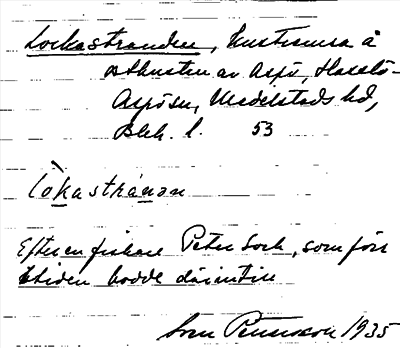 Lockastranden, kuststräcka å
östkusten av Aspö, Hasslö-
Aspösn, Medelstads hd,
Blek. l. 53
lòkastránən
Efter en fiskare Peter Lock, som förr
i tiden bodde därintill
Sven Benson 1935